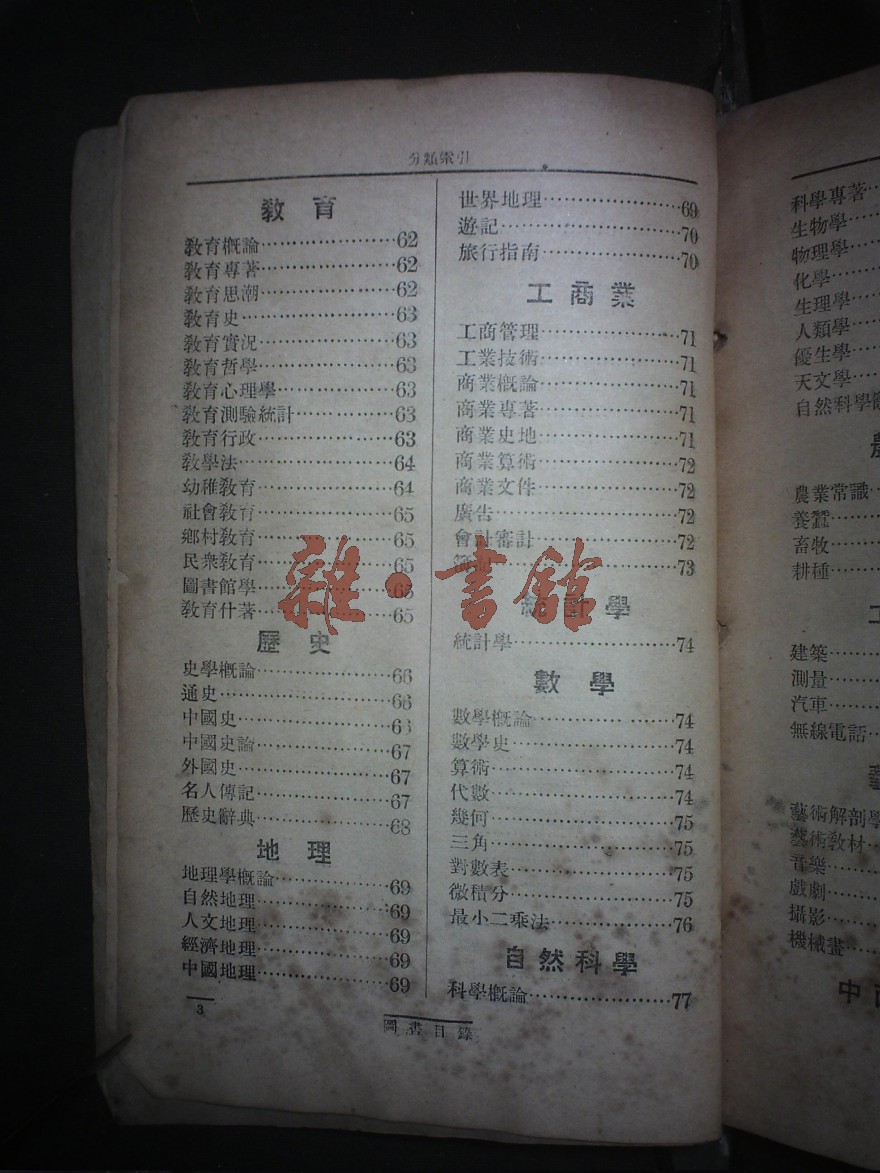 分類索引
教育
教育概論……………………62
教育專著……………………62
教育思潮……………………62
教育史……………………63
教育實況……………………63
教育哲學……………………63
教育心理學……………………63
教育測驗統計……………………63
教育行政……………………63
教學法……………………64
幼稚教育……………………64
社會教育……………………65
鄉村教育……………………65
民衆教育……………………65
圖書館學……………………65
教育什著……………………65
歷史
史學概論……………………66
通史……………………66
中國史……………………66
中國史論……………………67
外國史……………………67
名人傳記……………………67
歷史辭典……………………68
地理
地理學概論……………………69
自然地理……………………69
人文地理……………………69
經濟地理……………………69
中國地理……………………69
世界地理……………………69
遊記……………………70
旅行指南……………………70
工商業
工商管理……………………71
工業技術……………………71
商業概論……………………71
商業專著……………………71
商業史地……………………71
商業算術……………………72
商業文件……………………72
廣告……………………72
會計審計……………………72
……………………73
統計學
統計學……………………74
數學
數學概論……………………74
數學史……………………74
算術……………………74
代數……………………74
幾何……………………75
三角……………………75
對數表……………………75
微積分……………………75
最小二乘法……………………76
自然科學
科學概論……………………77
3
圖書目錄
雜·書館
科學專著……
生物學……
物理學……
化學……
生理學……
人類學……
優生學……
天文學……
自然科學
農業常識……
養蠶……
畜牧……
耕種……
工
建築……
測量……
汽車……
無線電話……
藝術解剖學
藝術教材……
音樂……
戲劇……
攝影……
機械畫……
中